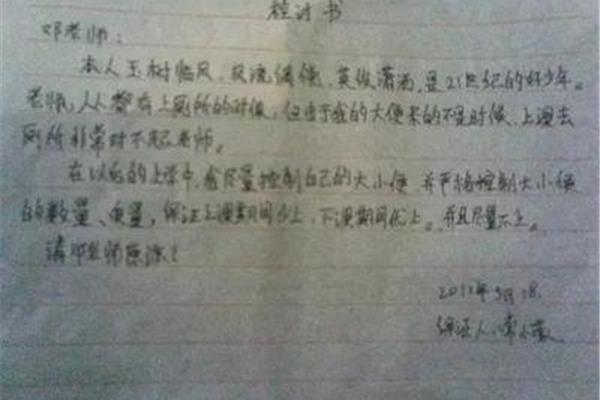 检讨书
邓老师：
本人玉树临风、风流倜傥、英俊潇洒，是21世纪的好少年。
老师，人人都有上厕所的时候，但由于我的大便来的不是时候，上课去
厕所非常对不起老师。
在以后的上学中，会尽量控制自己的大小便，并严格控制大小便
的数量、质量，保证上课期间少上，下课期间优上。并且尽量不上。
请邓老师原谅！
2011年9月18.
保证人：李小